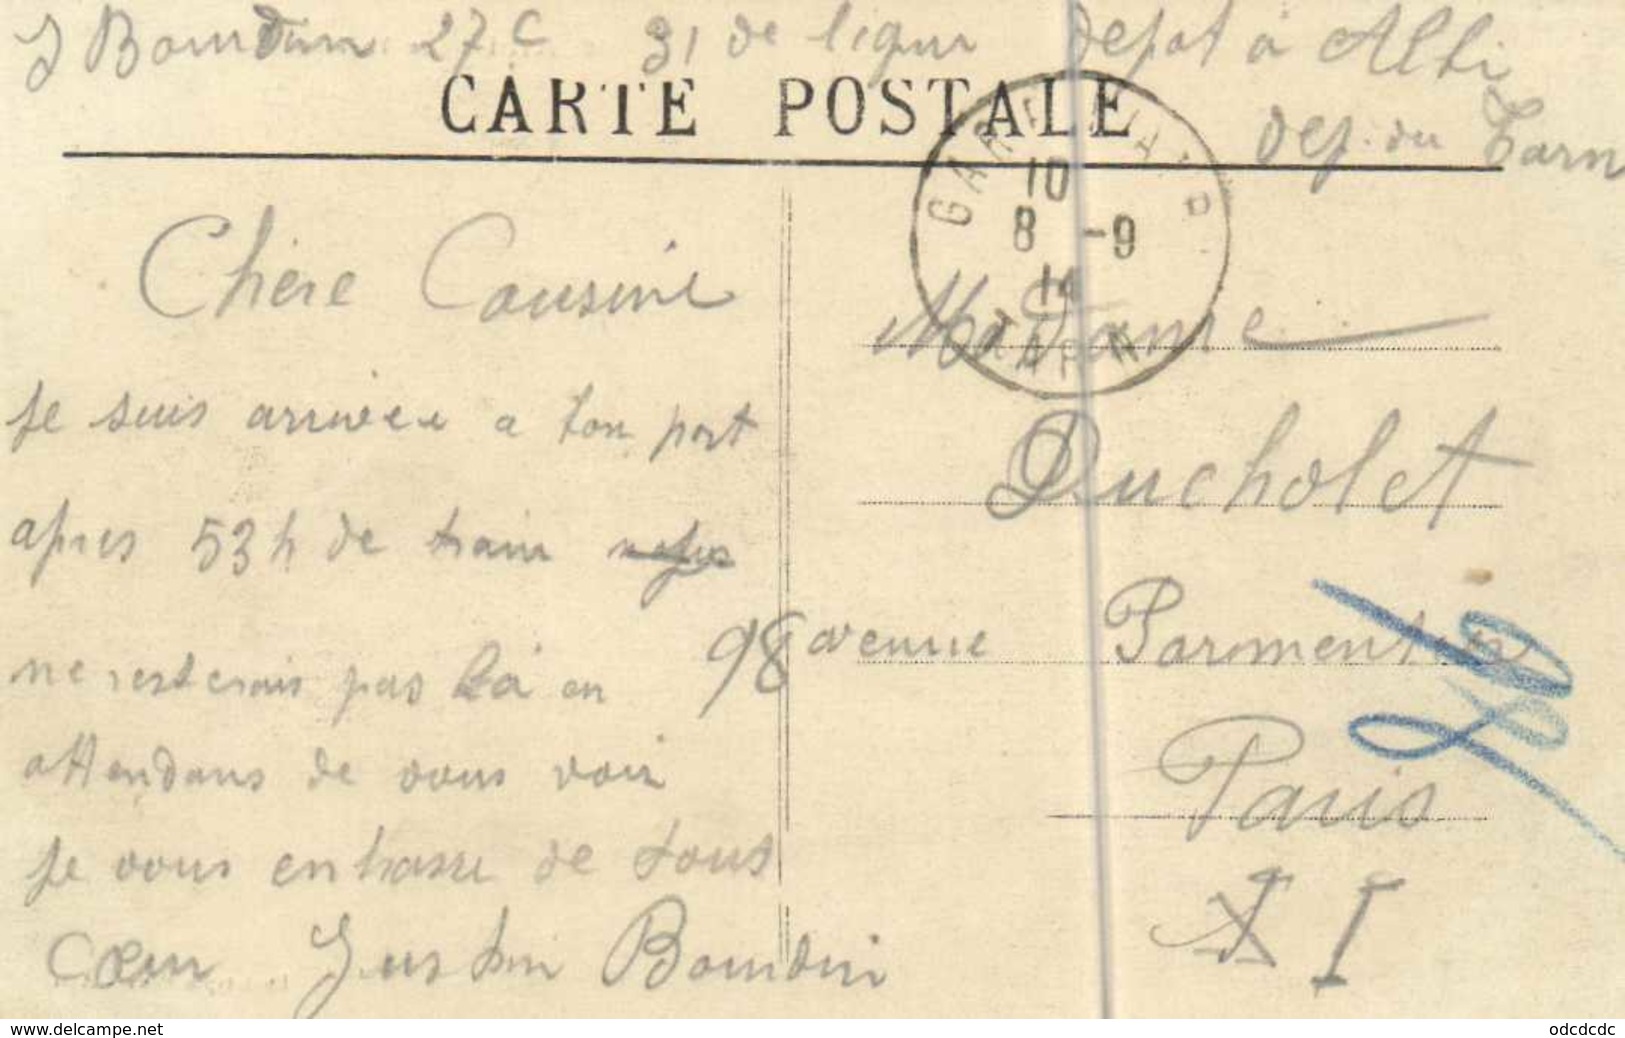 J Bourdin 27 C 31 de ligne depot a Albi
dep. du Tarn
CARTE POSTALE
GARE
10
8 -9
14
TARN
Chère Cousine
Je suis arrivée a bon port
apres 53 h de train
ne resterais pas là en
attendans de vous voir
Je vous enbrasse de tous
Cœur Justin Bourdin
Madame
Ducholet
98 avenue Parmentier
Paris
XI
www.delcampe.net
odcdcdc